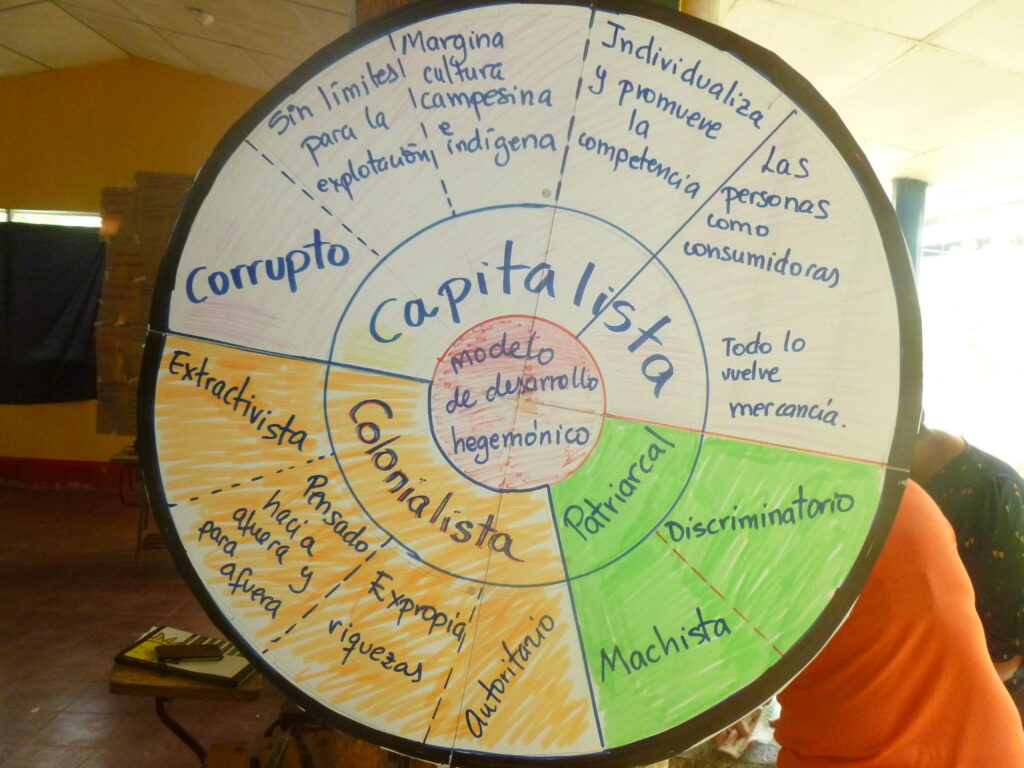 modelo
de desarrollo
hegemónico
Capitalista
Corrupto
Sin límites
para la
explotación
Margina
cultura
campesina
e
indígena
Individualiza
y promueve
la
competencia
Las
personas
como
consumidoras
Todo lo
vuelve
mercancía.
Patriarcal
Discriminatorio
Machista
Colonialista
Autoritario
Expropia
riquezas
Pensado
hacia
afuera y
para
afuera
Extractivista